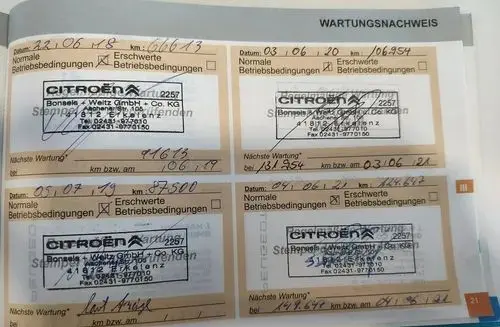 WARTUNGSNACHWEIS
Datum: 22.06.18 km: 66613
Normale Erschwerte
Betriebsbedingungen Betriebsbedingungen
CITROËN
2257
Bonsels + Weitz GmbH + Co. KG
Aachener Str. 105
41812 Erkelenz
Tel. 02431-977010
Fax 02431-9770150
Nächste Wartung* 91613
bei km bzw. am 06.19
Datum: 03.06.20 km: 106954
Normale Erschwerte
Betriebsbedingungen Betriebsbedingungen
CITROËN
2257
Bonsels + Weitz GmbH + Co. KG
Aachener Str. 105
41812 Erkelenz
Tel. 02431-977010
Fax 02431-9770150
Nächste Wartung*
bei 131954 km bzw. am 03.06.21
Datum: 05.07.19 km: 87500
Normale Erschwerte
Betriebsbedingungen Betriebsbedingungen
CITROËN
2257
Bonsels + Weitz GmbH + Co. KG
41812 Erkelenz
Tel. 02431-977010
Fax 02431-9770150
Nächste Wartung* Laut Anzeige
bei km bzw. am
Datum: 04.06.21 km: 124642
Normale Erschwerte
Betriebsbedingungen Betriebsbedingungen
CITROËN
2257
Bonsels + Weitz GmbH + Co. KG
Erkelenz
Tel. 02431-977010
Fax 02431-9770150
Nächste Wartung*
bei 149.642 km bzw. am
III
21